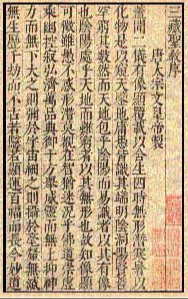 三藏聖教序
唐太宗文皇帝製
蓋聞二儀有像顯覆載以含生四時無形潛寒暑以
化物是以窺天鑒地庸愚皆識其端明陰洞陽賢哲罕
窮其數然而天地包乎陰陽而易識者以其有像
也陰陽處乎天地而難窮者以其無形也故知像顯
可徵雖愚不惑形潛莫覩在智猶迷況乎佛道崇虛
乘幽控寂弘濟萬品典御十方舉威靈而無上抑神
力而無下大之則彌於宇宙細之則攝於毫釐無滅
無生歷千劫而不古若隱若顯運百福而長今妙道